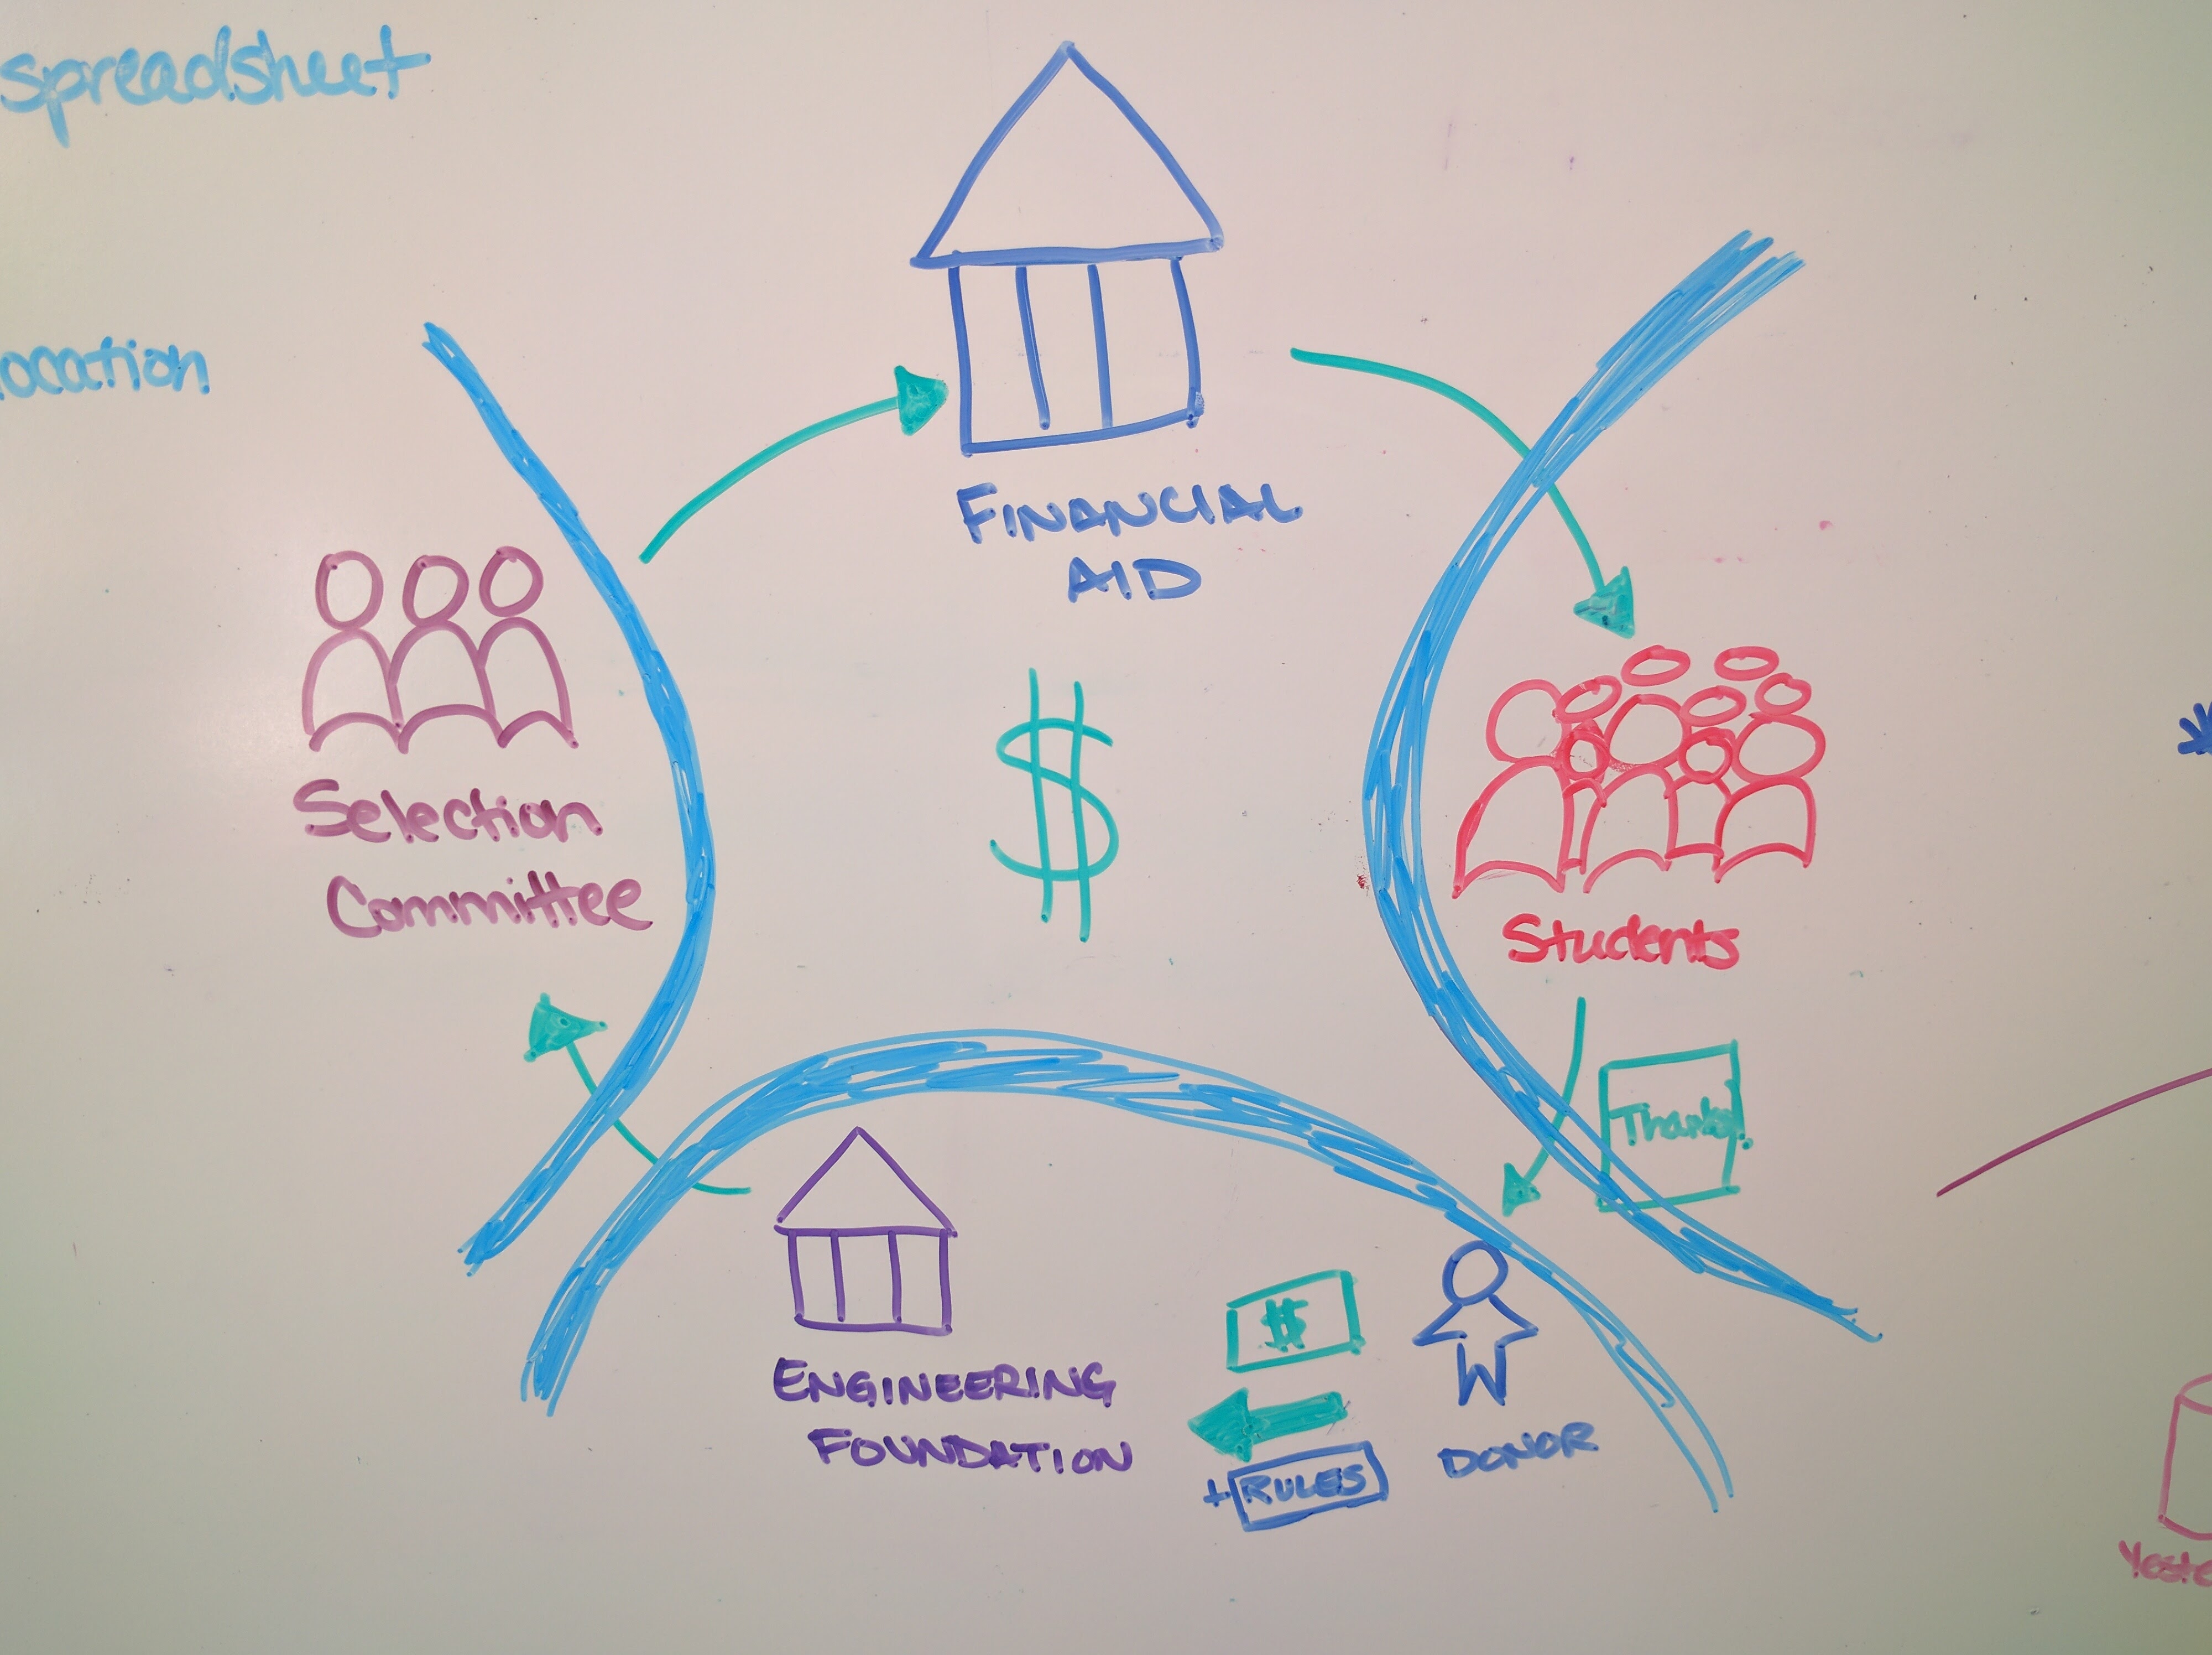 spreadsheet
location
FINANCIAL
AID
Selection
Committee
$
Students
Thanks!
ENGINEERING
FOUNDATION
$
+ RULES
DONOR